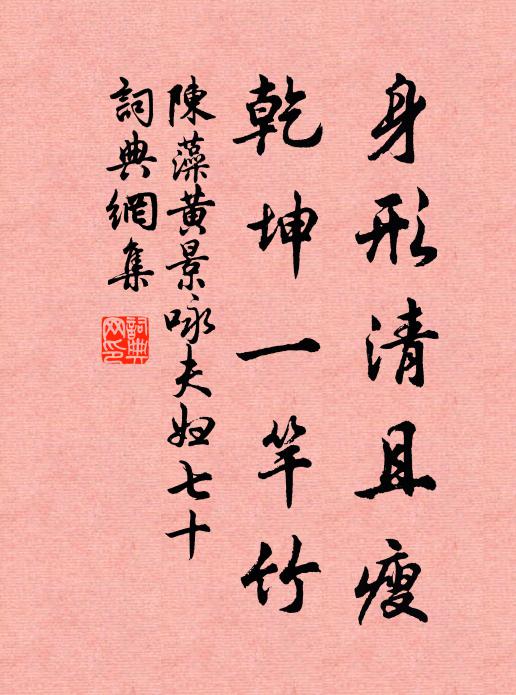 身形清且瘦
乾坤一竿竹
陳藻黃景咏夫妇七十
詞典網集
詞典網印